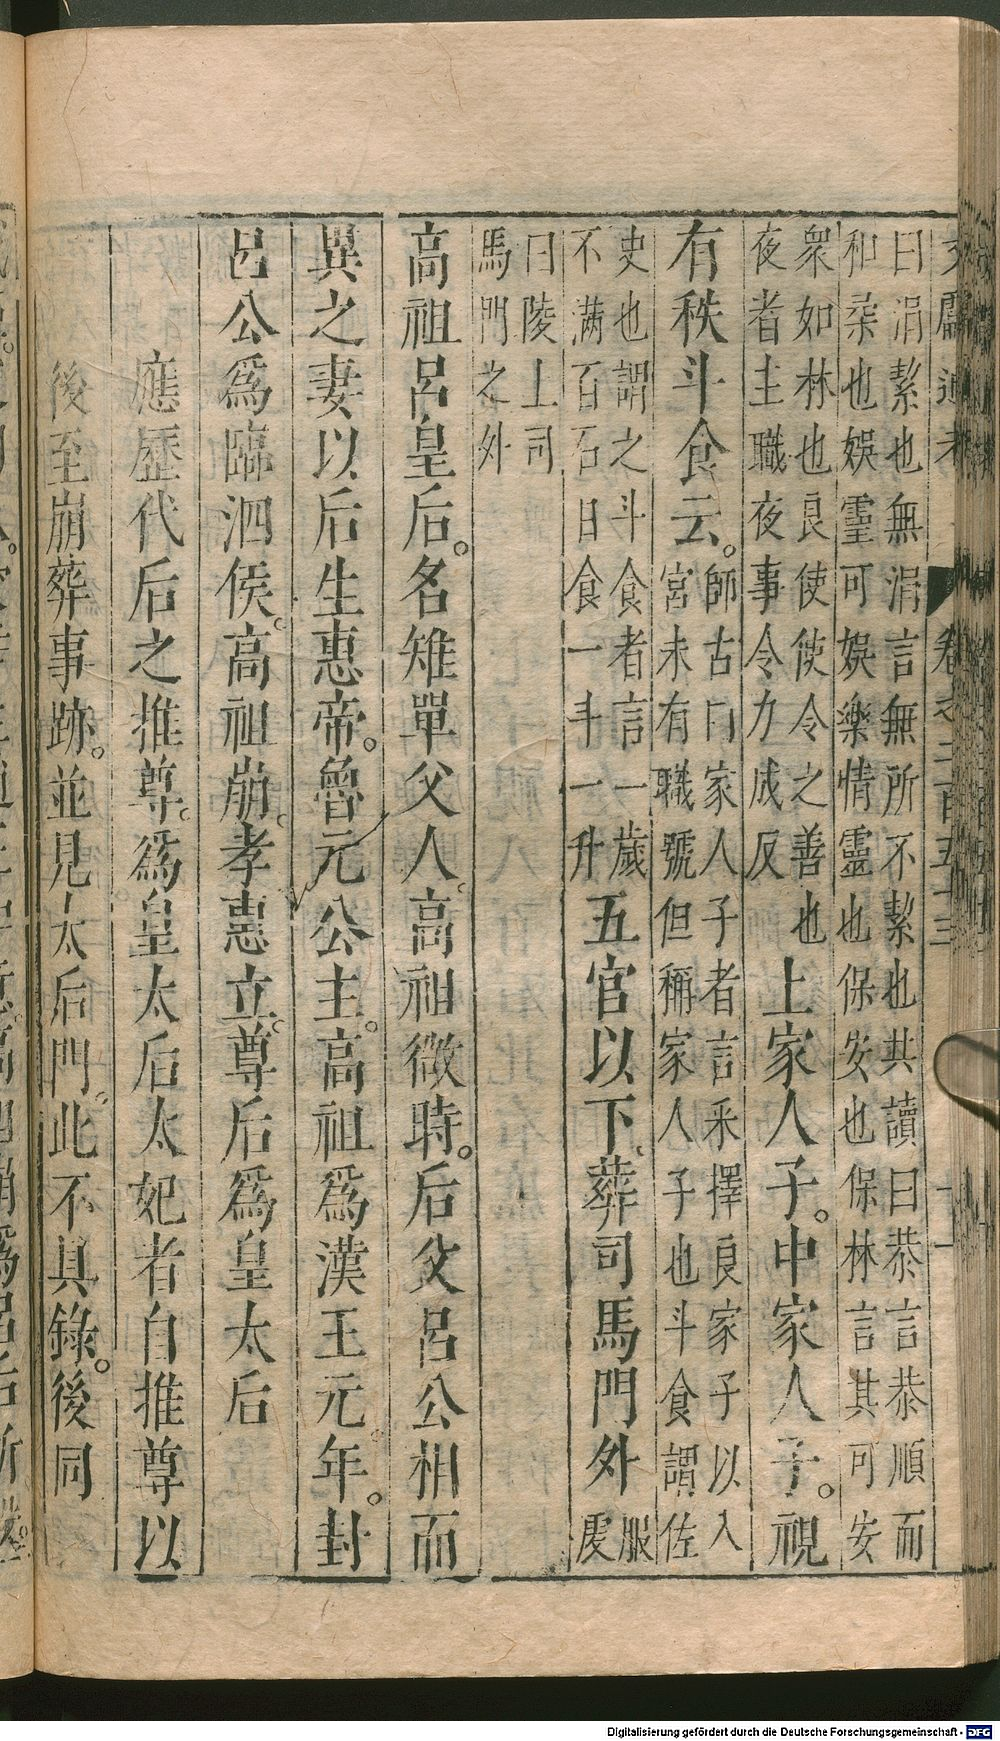 曰涓絜也無涓言無所不絜也共讀曰恭言恭順而
和柔也娛靈可娛樂情靈也保安也保林言其可安
衆如林也良使使令之善也
夜者主職夜事令力成反
上家人子。中家人子。視
有秩斗食云。
師古曰家人子者言采擇良家子以入
宮未有職號但稱家人子也斗食謂佐
史也謂之斗食者言一歲
不满百石日食一斗一升
五官以下葬司馬門外
服虔
曰陵上司
馬門之外
高祖呂皇后。名雉單父人。高祖微時。后父呂公相而
異之妻以后生惠帝。魯元公主。高祖爲漢王元年。封
呂公爲臨泗侯。高祖崩。孝惠立。尊后爲皇太后
應歷代后之推尊。爲皇太后太妃者自推尊以
後至崩葬事跡。並見太后門。此不具錄。後同
卷之二百五十三
Digitalisierung gefördert durch die Deutsche Forschungsgemeinschaft - DFG